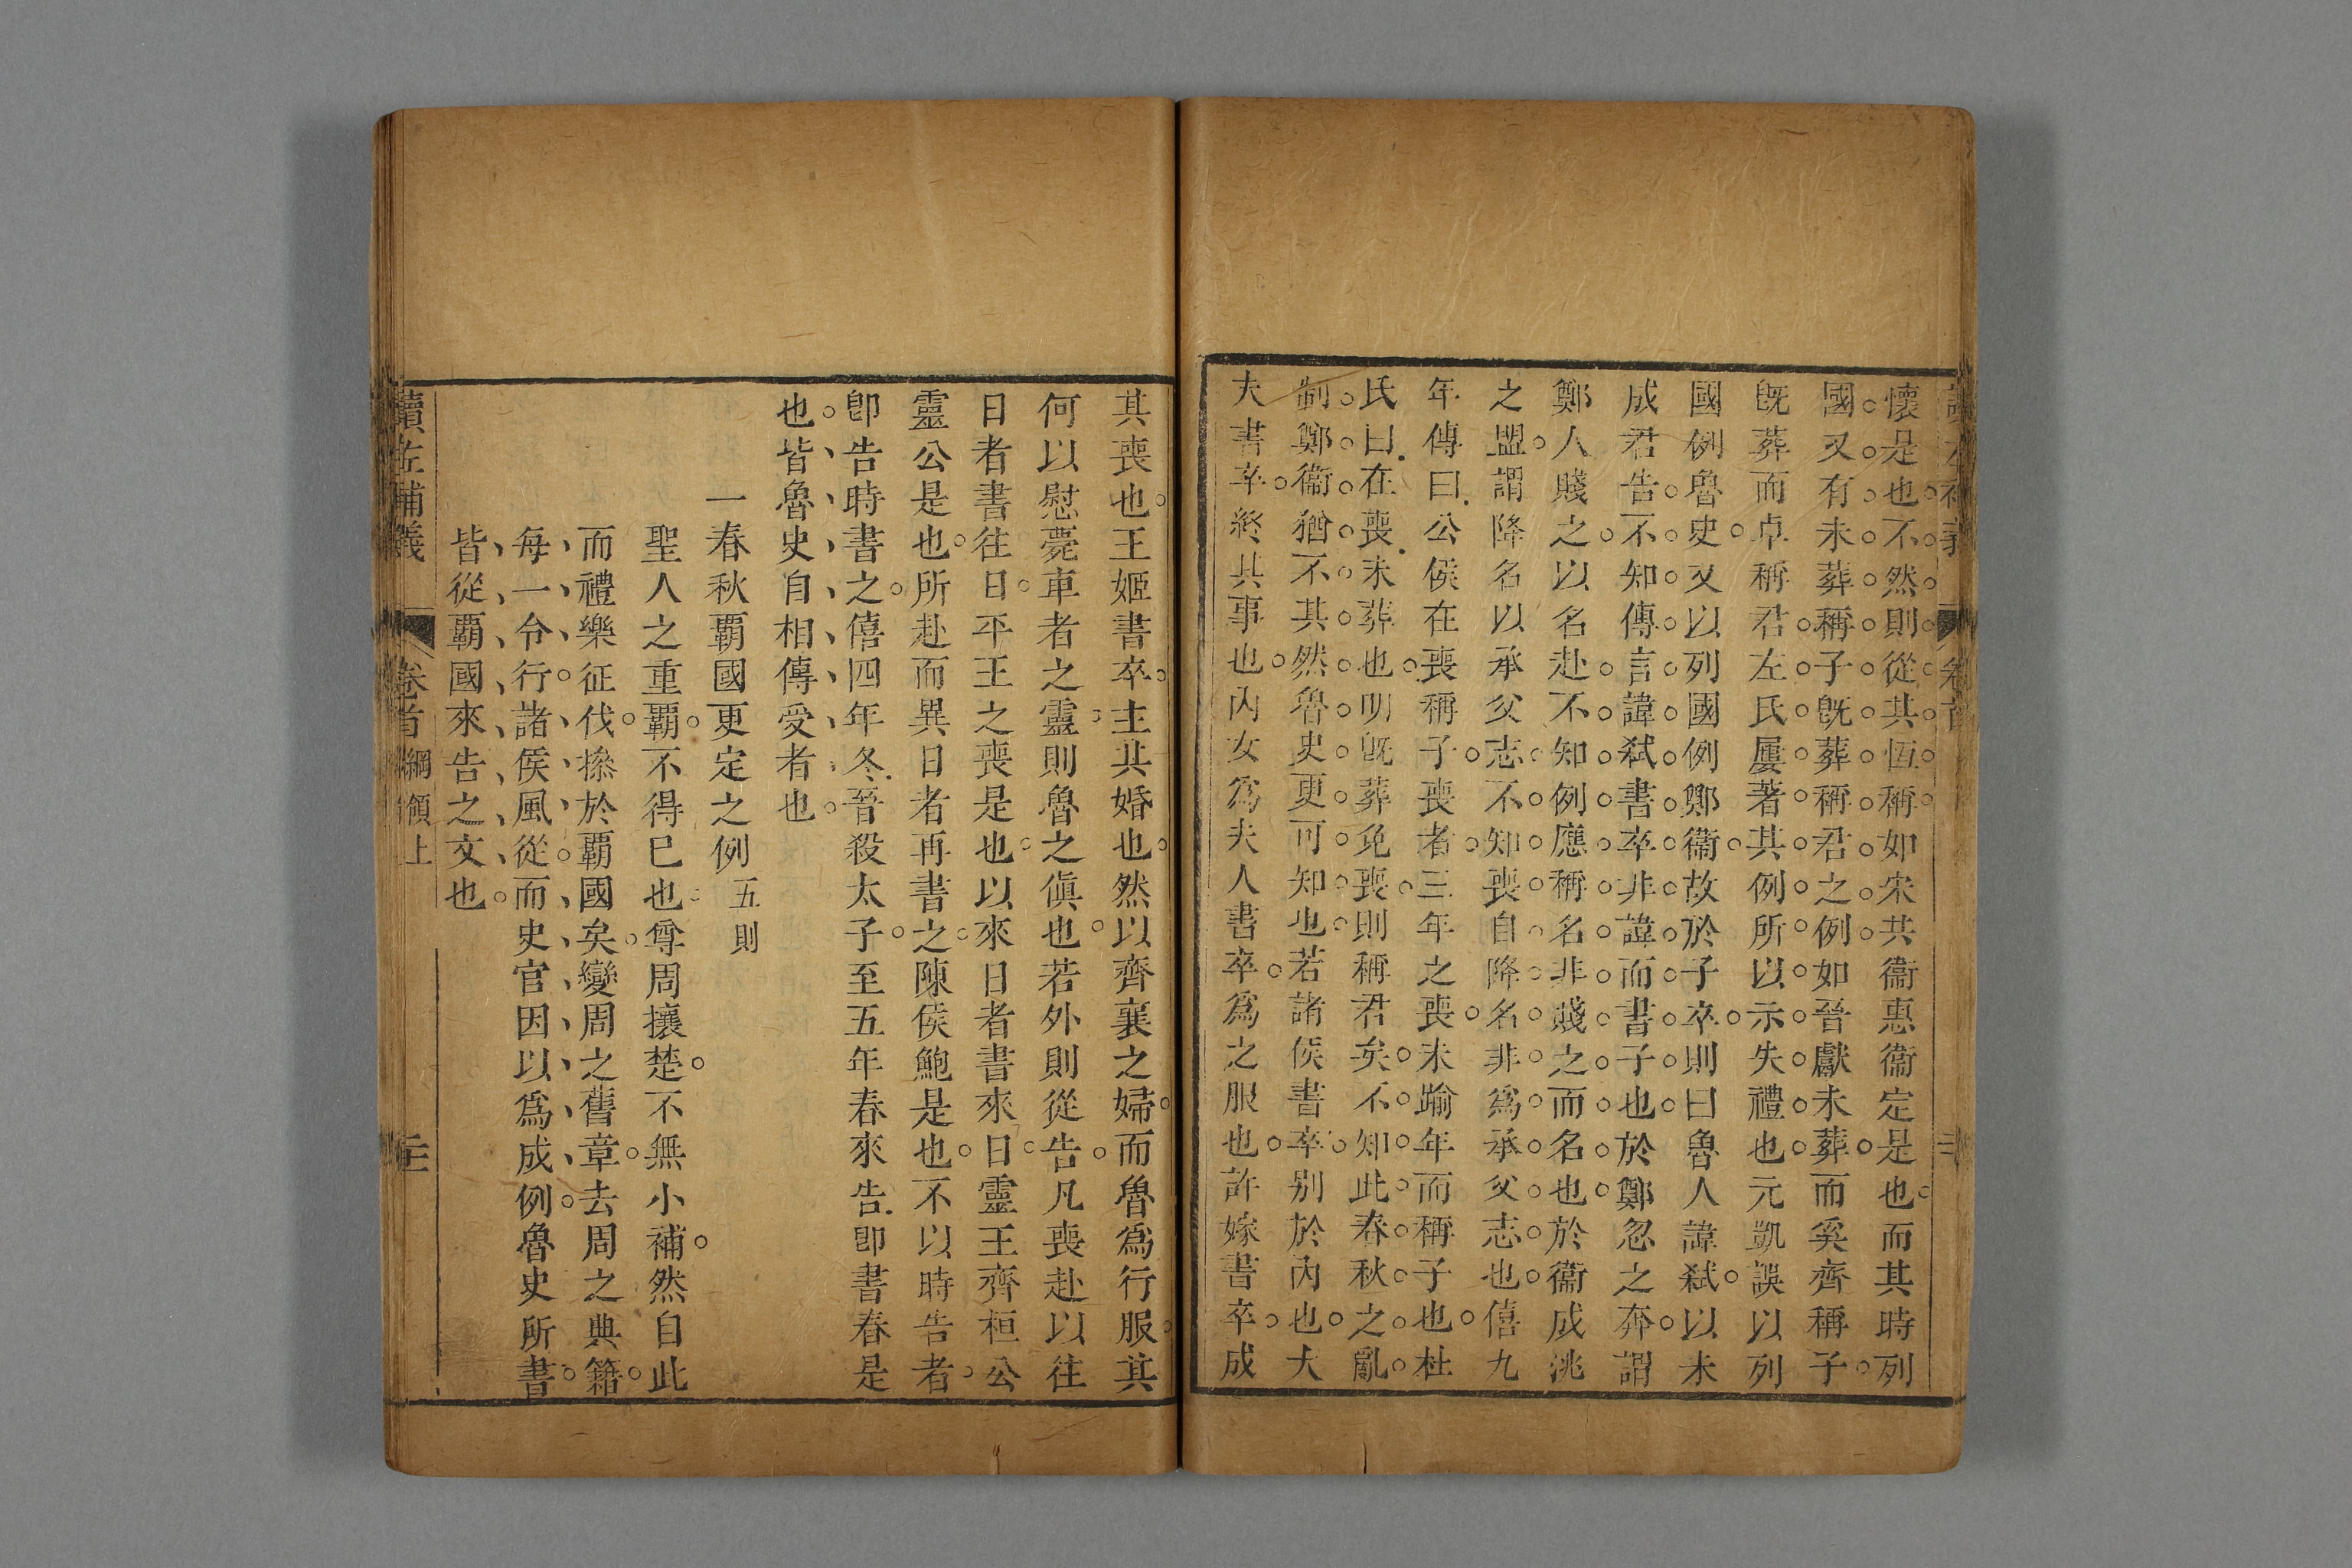 懷是也不然則從其恆稱如宋共衞惠衞定是也而其時列
國又有未葬稱子旣葬稱君之例如晉獻未葬而奚齊稱子
旣葬而卓稱君左氏屢著其例所以示失禮也元凱誤以列
國例魯史又以列國例鄭衞故於子卒則曰魯人諱弑以未
成君告不知傳言諱弑書卒非諱而書子也於鄭忽之奔謂
鄭人賤之以名赴不知例應稱名非賤之而名也於衞成洮
之盟謂降名以承父志不知喪自降名非爲承父志也僖九
年傳曰公侯在喪稱子喪者三年之喪未踰年而稱子也杜
氏曰在喪未葬也明旣葬免喪則稱君矣不知此春秋之亂
制鄭衞猶不其然魯史更可知也若諸侯書卒别於內也大
夫書卒終其事也內女爲夫人書卒爲之服也許嫁書卒成
其喪也王姬書卒主其婚也然以齊襄之婦而魯爲行服其
何以慰薨車者之靈則魯之傎也若外則從告凡喪赴以往
日者書往日平王之喪是也以來日者書來日靈王齊桓公
靈公是也所赴而異日者再書之陳侯鮑是也不以時告者
卽告時書之僖四年冬晉殺太子至五年春來告卽書春是
也皆魯史自相傳受者也
一春秋覇國更定之例五則
聖人之重覇不得已也尊周攘楚不無小補然自此
而禮樂征伐摻於覇國矣變周之舊章去周之典籍
每一令行諸侯風從而史官因以爲成例魯史所書
皆從覇國來告之文也
讀左補義 卷首 綱領上